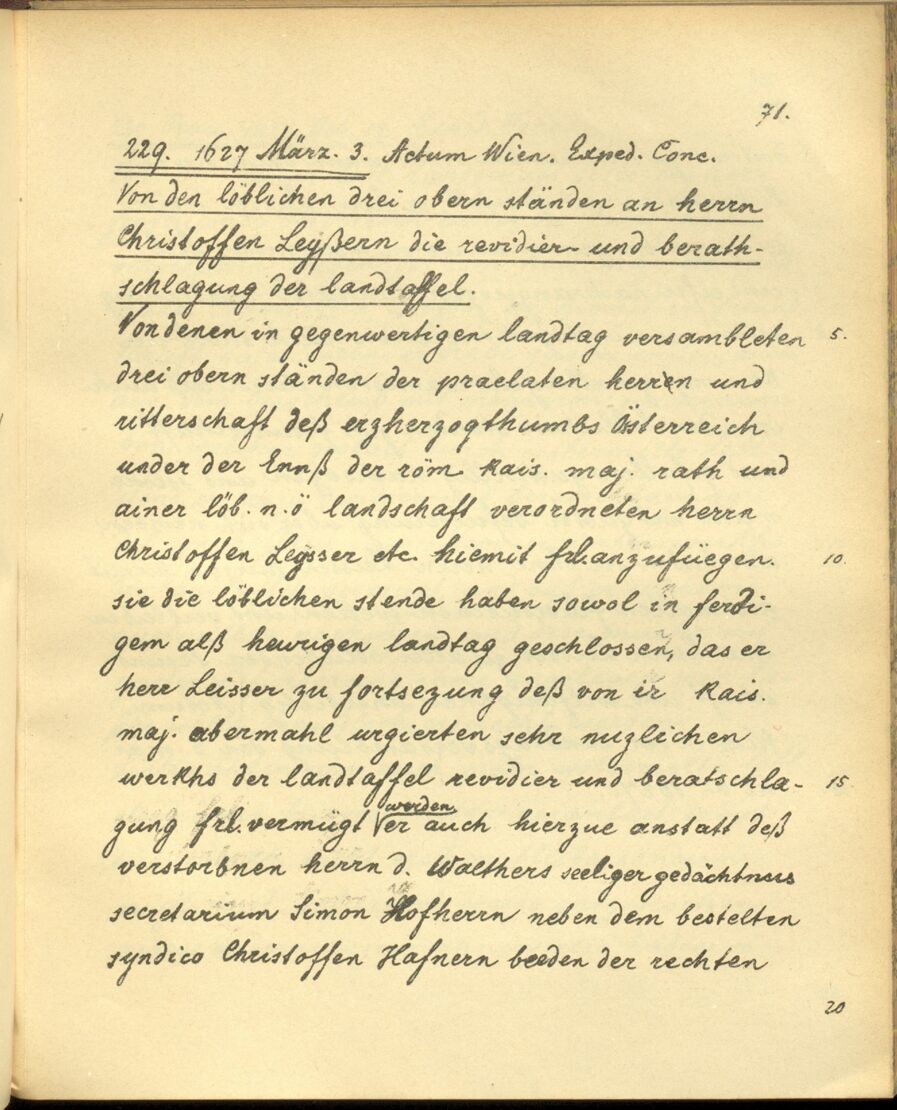 71.
229. 1627 März. 3. Actum Wien. Exped. Conc.
Von den löblichen drei obern ständen an herrn
Christoffen Leyßern die revidier- und berath-
schlagung der landtaffel.
Von denen in gegenwertigen landtag versambleten 5.
drei obern ständen der praelaten herren und
ritterschaft deß erzherzogthumbs Österreich
under der Ennß der röm. Kais. maj. rath und
ainer löb. n.ö landschaft verordneten herrn
Christoffen Leysser etc. hiemit frl. anzufüegen. 10.
sie die löblichen stende haben sowol in ferdi-
gem alß heurigen landtag geschlossen, das er
herr Leisser zu fortsezung deß von ir Kais.
maj. abermahl urgierten sehr nuzlichen
werkhs der landtaffel revidier und beratschla- 15
gung frl. vermügt werden. er auch hierzue anstatt deß
verstorbnen herrn d. Walthers seeliger gedächtnus
secretarium Simon Hofherrn neben dem bestelten
syndico Christoffen Hafnern beeden der rechten
20